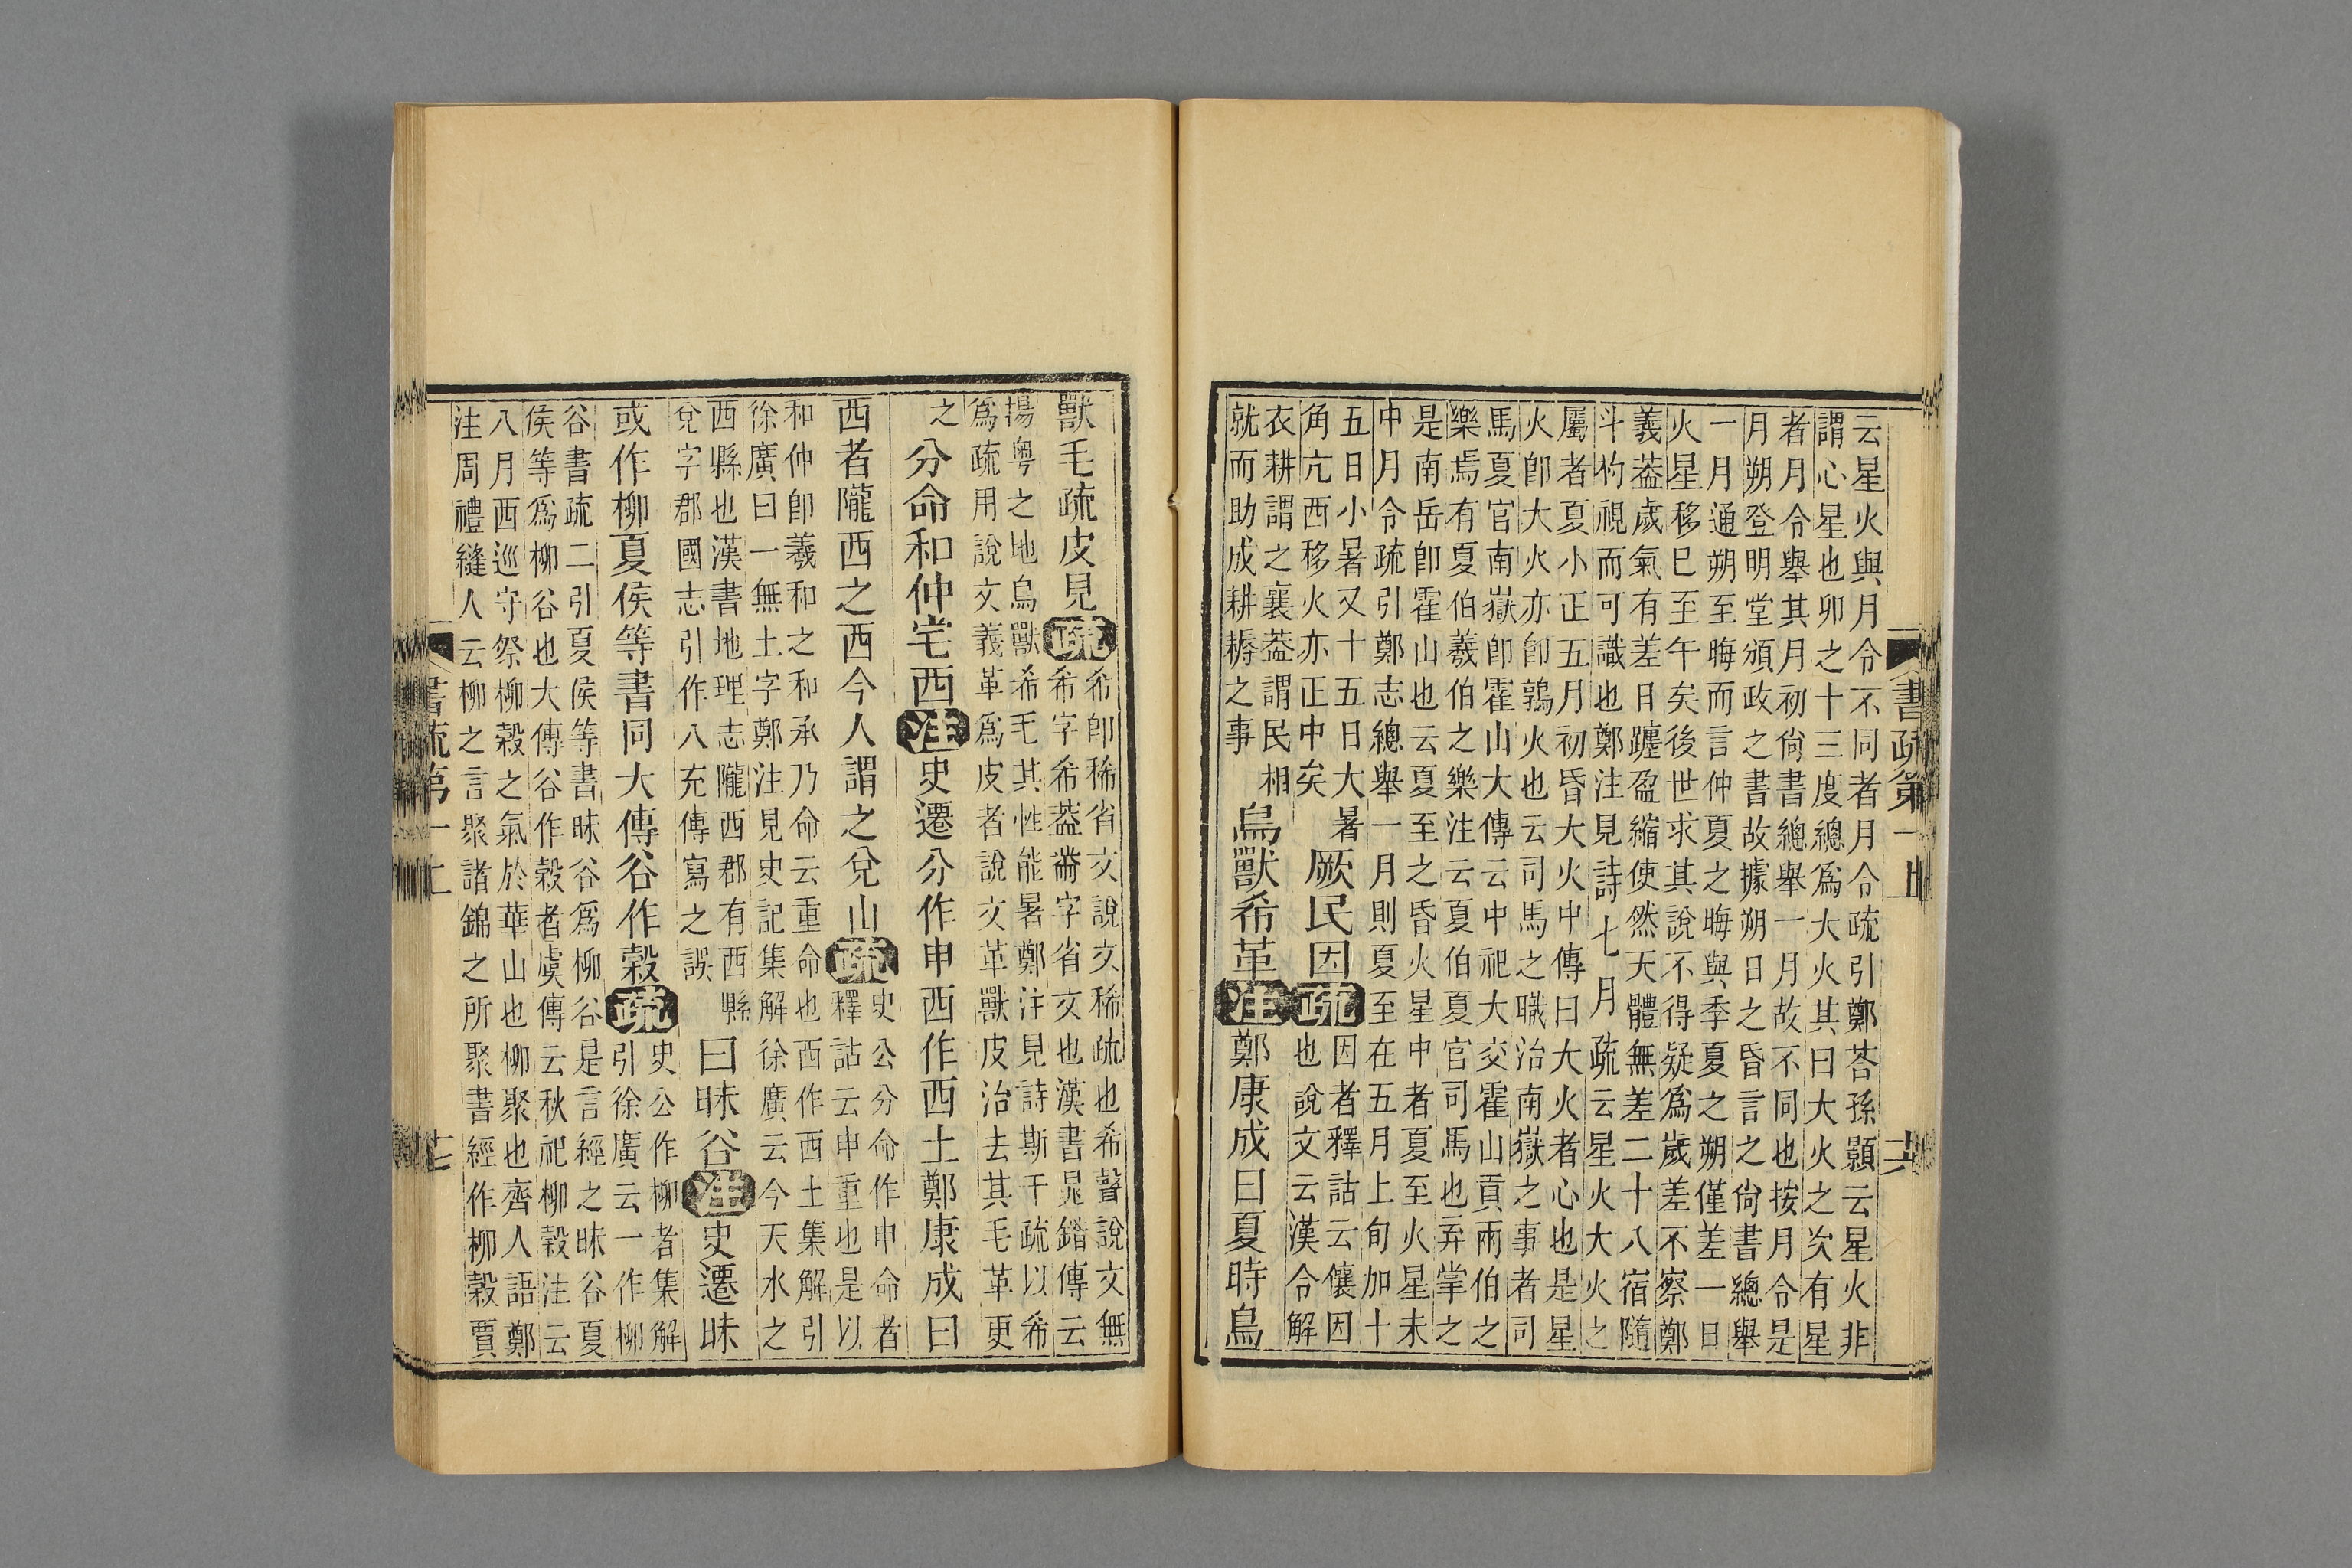 書疏第一上
十六
云星火與月令不同者月令疏引鄭荅孫顥云星火非
謂心星也卯之十三度總爲大火其曰大火之次有星
者月令舉其月初尙書總舉一月故不同也按月令是
月朔登明堂頒政之書故據朔日之昏言之尙書總舉
一月通朔至晦而言仲夏之晦與季夏之朔僅差一日
火星移巳至午矣後世求其說不得疑爲歲差不察鄭
義葢歲氣有差日躔盈縮使然天體無差二十八宿隨
斗杓視而可識也鄭注見詩七月疏云星火大火之
屬者夏小正五月初昏大火中傳曰大火者心也是星
火卽大火亦卽鶉火也云司馬之職治南嶽之事者司
馬夏官南嶽卽霍山大傳云中祀大交霍山貢兩伯之
樂焉有夏伯羲伯之樂注云夏伯夏官司馬也弃掌之
是南岳卽霍山也云夏至之昏火星中者夏至火星未
中月令疏引鄭志總舉一月則夏至在五月上旬加十
五日小暑又十五日大暑
角亢西移火亦正中矣
厥民因
疏
因者釋詁云儴因
也說文云漢令解
衣耕謂之襄葢謂民相
就而助成耕耨之事
鳥獸希革
注
鄭康成曰夏時鳥
獸毛疏皮見
疏
希卽稀省文說文稀疏也希聲說文無
希字希葢黹字省文也漢書鼂錯傳云
揚粤之地鳥獸希毛其性能暑鄭注見詩斯干疏以希
爲疏用說文義革爲皮者說文革獸皮治去其毛革更
之
分命和仲宅西
注
史遷分作申西作西土鄭康成曰
西者隴西之西今人謂之兌山
疏
史公分命作申命者
釋詁云申重也是以
和仲卽羲和之和承乃命云重命也西作西土集解引
徐廣曰一無土字鄭注見史記集解徐廣云今天水之
西縣也漢書地理志隴西郡有西縣
兌字郡國志引作八充傳寫之誤
曰昧谷
注
史遷昧
或作柳夏侯等書同大傳谷作穀
疏
史公作柳者集解
引徐廣云一作柳
谷書疏二引夏侯等書昧谷爲柳谷是言經之昧谷夏
侯等爲柳谷也大傳谷作穀者虞傳云秋祀柳穀注云
八月西巡守祭柳穀之氣於華山也柳聚也齊人語鄭
注周禮縫人云柳之言聚諸錦之所聚書經作柳穀賈
書疏第一上
十七